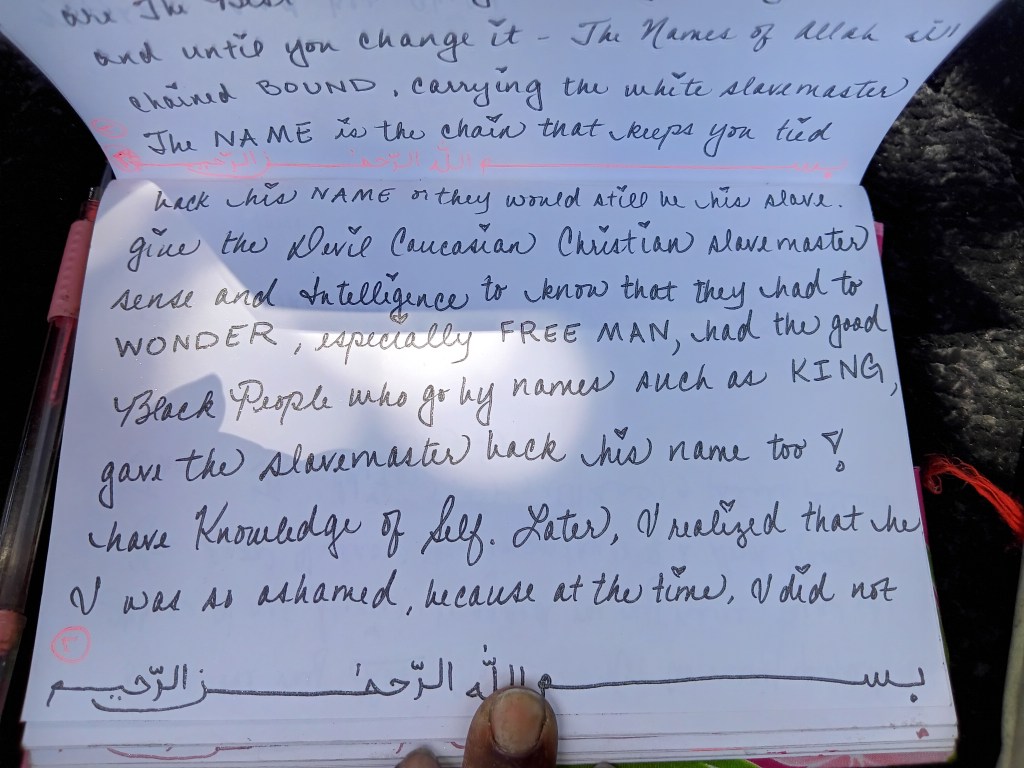 بسم الله الرّحمٰن الرّحيم
٣
I was so ashamed, because at the time, I did not
have Knowledge of Self. Later, I realized that he
gave the slavemaster back his name too!
Black People who go by names such as KING,
WONDER, especially FREE MAN, had the good
sense and Intelligence to know that they had to
give the Devil Caucasian Christian slavemaster
back his NAME or they would still be his slave.
The NAME is the chain that keeps you tied
chained BOUND, carrying the white slavemaster
and until you change it - The Names of Allah
are The Best